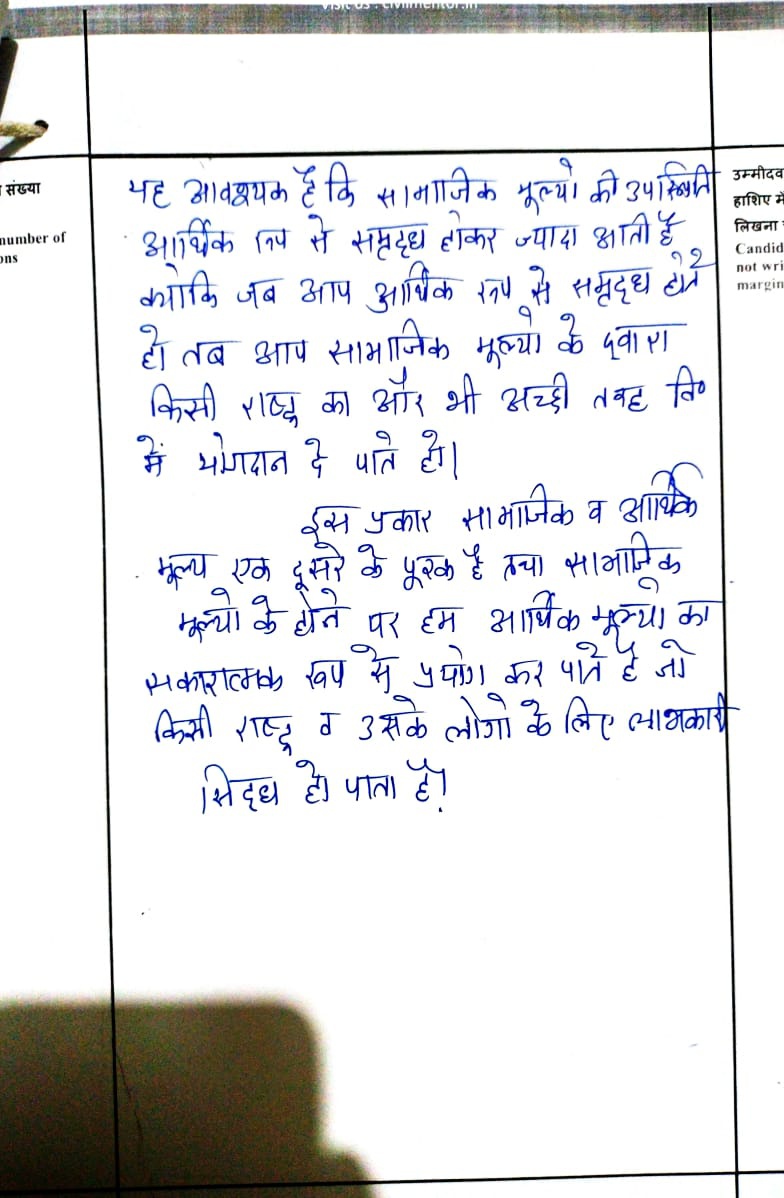 Visit us : civilmentor.in
संख्या
number of
ons
उम्मीदव
हाशिए में
लिखना
Candid
not wri
margin
यह आवश्यक है कि सामाजिक मूल्यो की उपस्थिति
आर्थिक रूप से समृद्ध होकर ज्यादा आती है
क्योकि जब आप आर्थिक रूप से समृद्ध होते
हो तब आप सामाजिक मूल्यो के द्वारा
किसी राष्ट्र का और भी अच्छी तरह वि०
में योगदान दे पाते हो।
इस प्रकार सामाजिक व आर्थिक
मूल्य एक दूसरे के पूरक है तथा सामाजिक
मूल्यो के होने पर हम आर्थिक मूल्यो का
सकारात्मक रूप से प्रयोग कर पाते है जो
किसी राष्ट्र व उसके लोगो के लिए लाभकारी
सिद्ध हो पाता है।